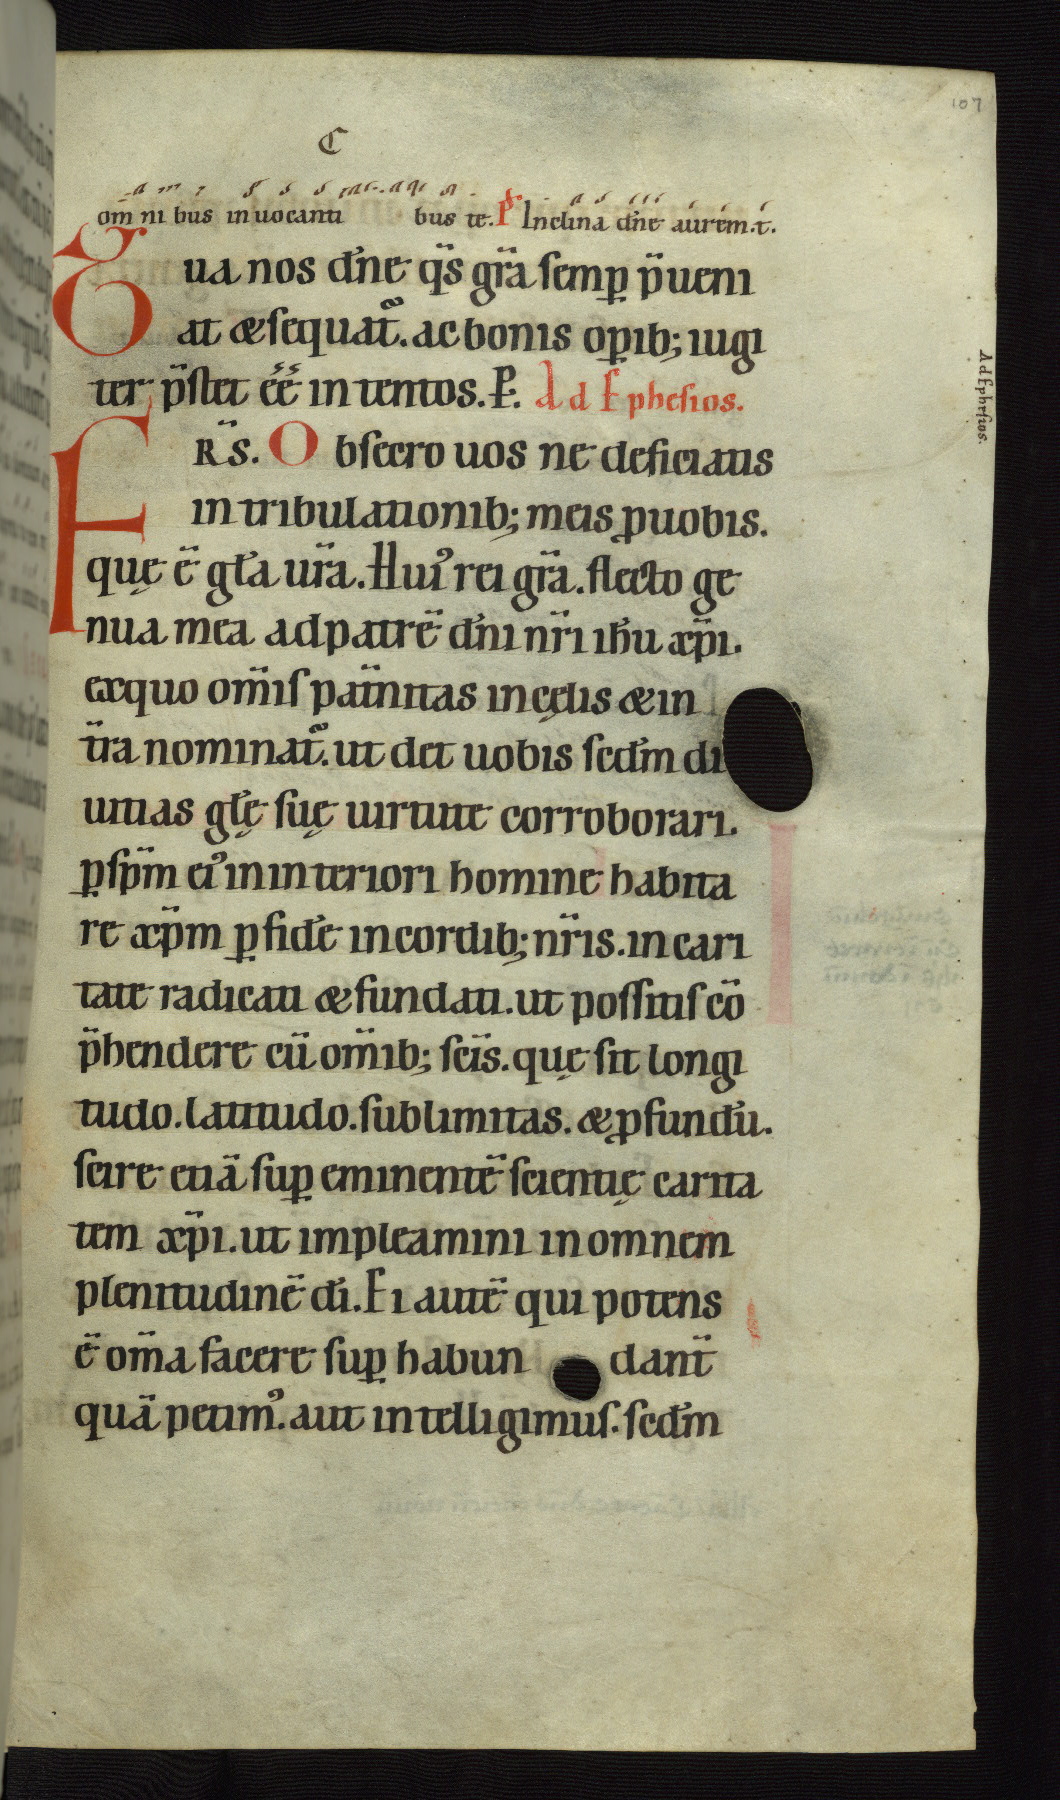 107
C
om ni bus inuocanti bus te. Ps Inclina dn̄e aurem.t.
Tua nos dn̄e q̄s gr̄a semp̲ p̄ueni
at & sequat᷑. ac bonis op̲ib; iugi
ter p̄stet eē intentos. P̲. Ad Ephesios.
FR̄S. Obsecro uos ne deficiatis
in tribulationib; meis ꝓ uobis.
quę ē gl̄a ur̄a. Huiꝰ rei gr̄a. flecto ge
nua mea ad patrē dn̄i nr̄i ih̄u xp̄i.
ex quo om̄is pat̄nitas in cęlis & in
t̄ra nominat᷑. ut det uobis scd̄m di
uitias gl̄ę suę uirtute corroborari.
p̲ sp̄m eiꝰ in interiori homine habita
re xp̄m p̲ fidē in cordib; nr̄is. in cari
tate radicati & fundati. ut possitis cō
p̄hendere cū om̄ib; sc̄is. quę sit longi
tudo. latitudo. sublimitas. & ꝓfundū.
scire etiā sup̲ eminentē scientię carita
tem xp̄i. ut impleamini in omnem
plenitudinē dī. Ei autē qui potens
ē om̄a facere sup̲ habun dant̄
quā petimꝰ. aut intelligimus. scd̄m
Ad Ephesios.